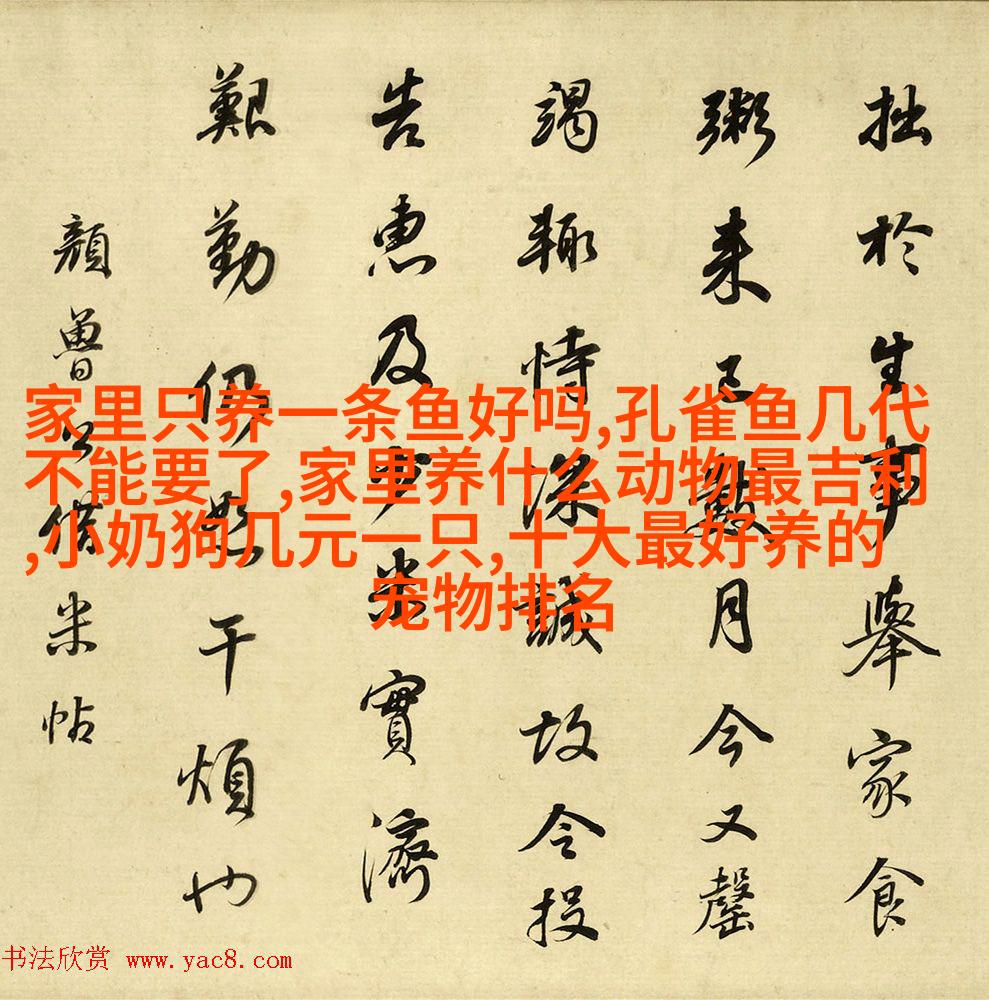 拙於生事舉家食
粥来已數月今又罄
竭輙恃深誠故令投
告惠及少米實濟
艱勤仍恕干煩也
顏魯公借米帖
家里只养一条鱼好吗,孔雀鱼几代
不能要了,家里养什么动物最吉利
,小奶狗几元一只,十大最好养的
宠物排名
书法欣赏 www.yac8.com